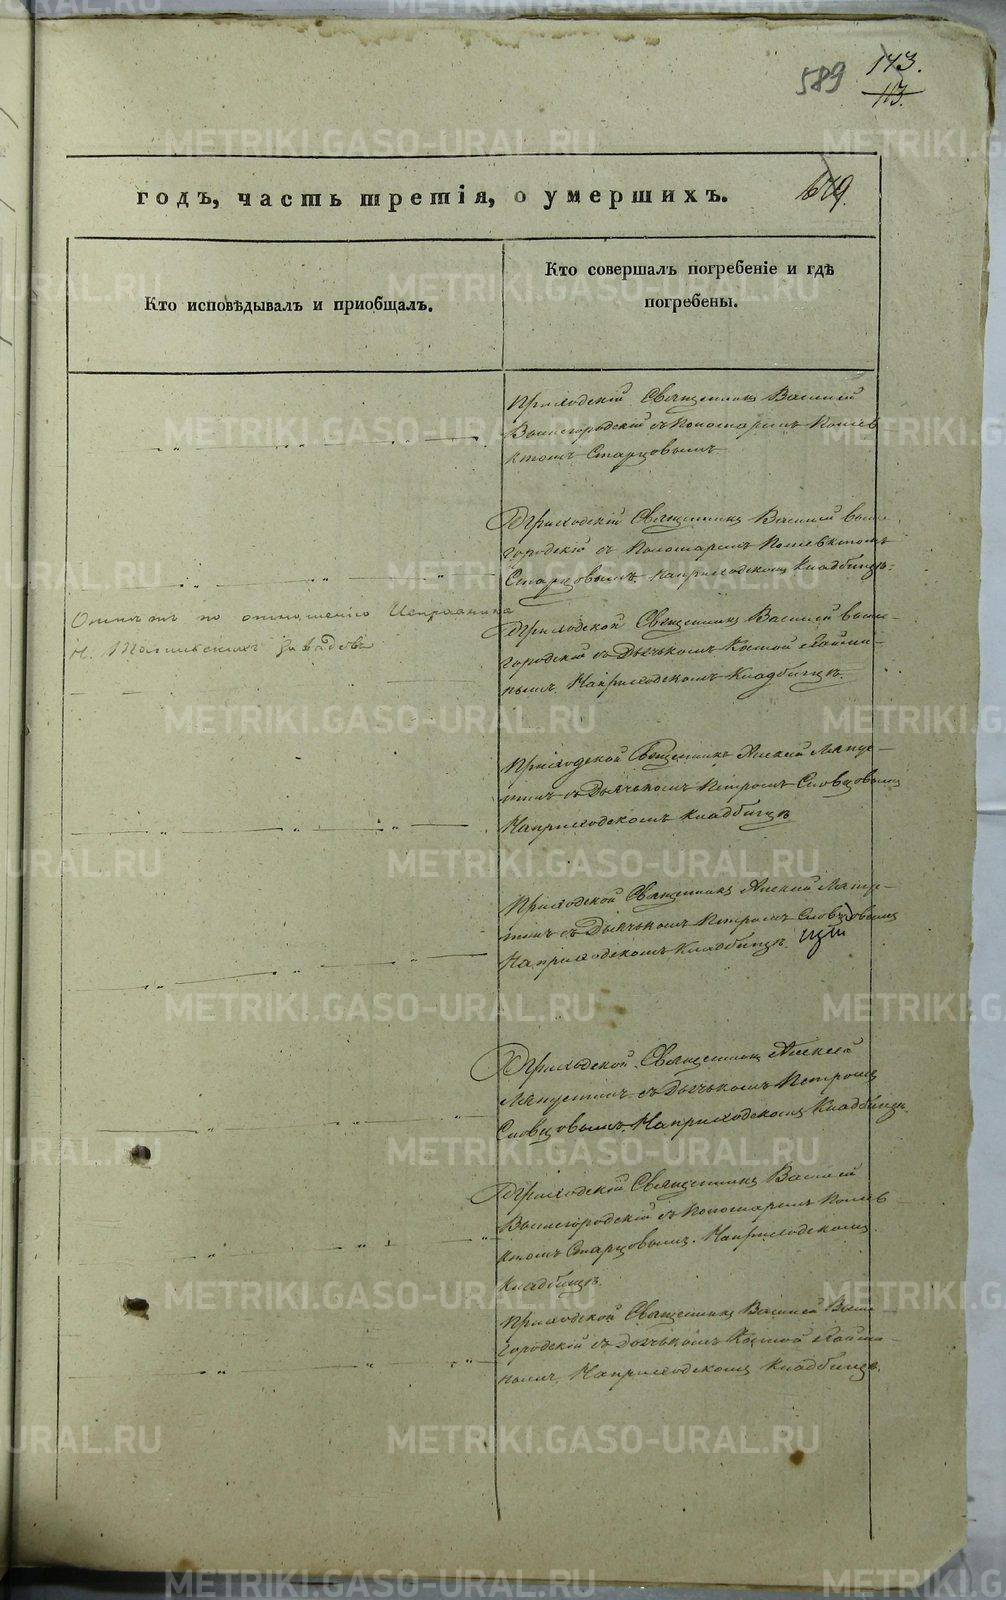 589
143.
113.
годъ, часть третія, о умершихъ.
Кто исповѣдывалъ и приобщалъ.
Кто совершалъ погребеніе и гдѣ
погребены.
Приходскій Священникъ Василій
Вышегородскій съ Пономаремъ Полiев
ктомъ Старцовымъ
Приходскій Священникъ Василій Выше
городскій съ Пономаремъ Полiевктомъ
Старцовымъ. На приходскомъ Кладбищѣ.
по отношенію Исправника
Н. Тагильскихъ заводовъ
Приходской Священникъ Василій Выше-
городскій съ Дьячькомъ
На приходскомъ Кладбищѣ.
Приходской Священникъ Алекsій Ляпус-
тинъ съ Дьячькомъ Петромъ Словцовымъ
На приходскомъ кладбищѣ
Приходской Священникъ Алексій Ляпус-
тинъ съ Дьячькомъ Петромъ Словцовымъ
На приходскомъ Кладбищѣ.
Приходской Священникъ Алексей
Ляпустинъ съ Дьячькомъ Петромъ
Словцовымъ. На приходскомъ Кладбищѣ.
Приходскій Священникъ Василій
Вышегородскій съ Пономаремъ Полiев
ктомъ Старцовымъ. На приходскомъ
Кладбищѣ.
Приходской Священникъ Василій Выше-
городскій съ Дьячькомъ
На приходскомъ Кладбищѣ.
METRIKI.GASO-URAL.RU